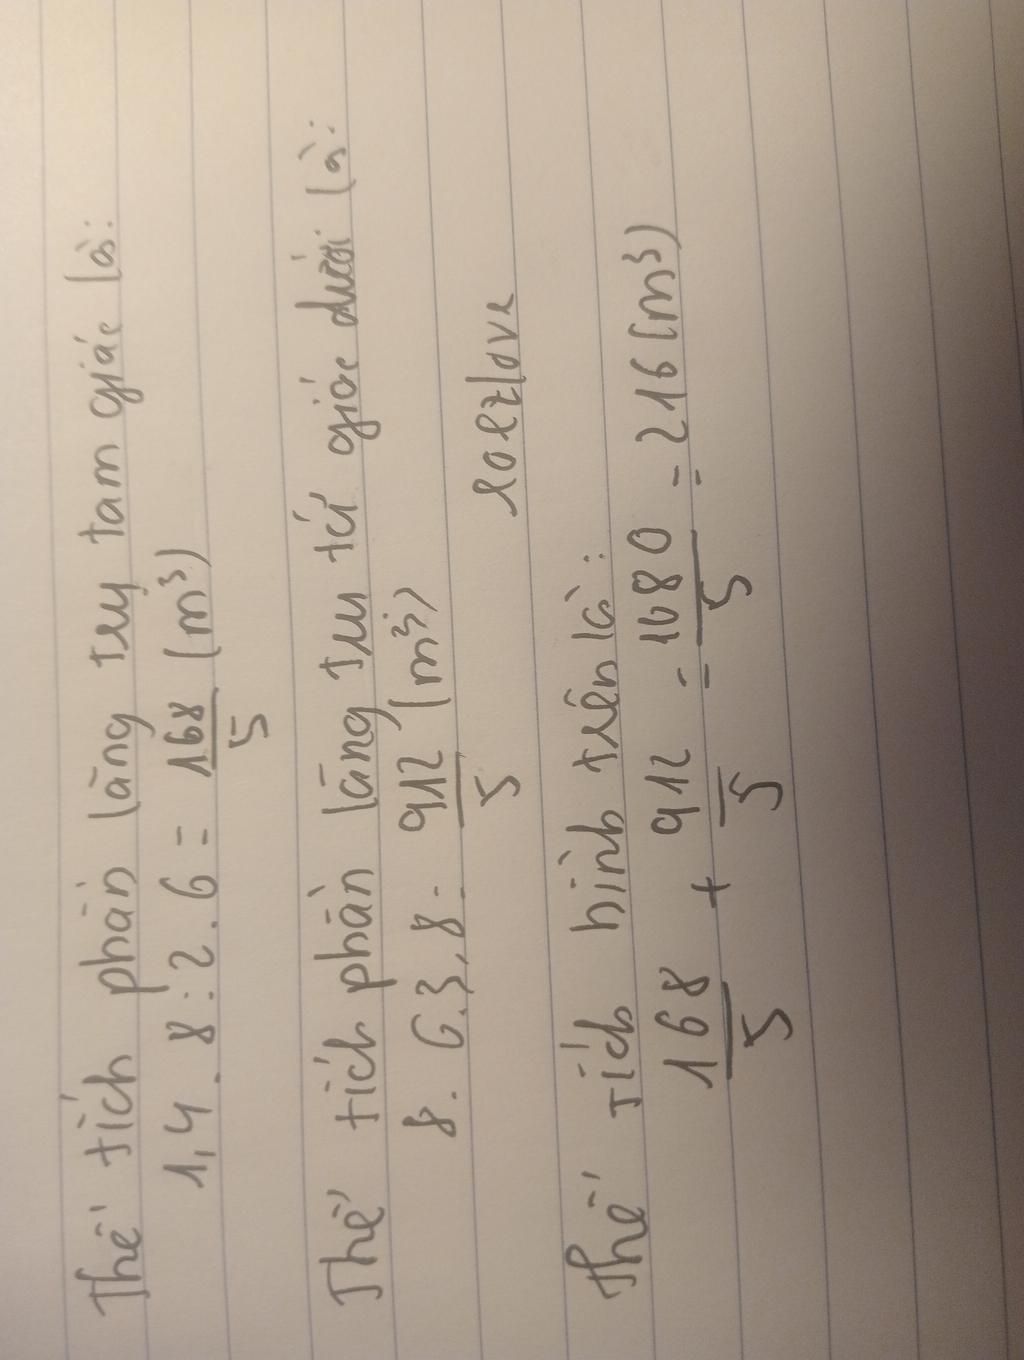 Thể tích phần lăng trụ tam giác là:
1,4 . 8 : 2 . 6 = 168/5 (m³)
Thể tích phần lăng trụ tứ giác dưới là:
8 . 6 . 3,8 = 912/5 (m³)
loezlove
Thể tích hình trên là:
168/5 + 912/5 = 1080/5 = 216 (m³)